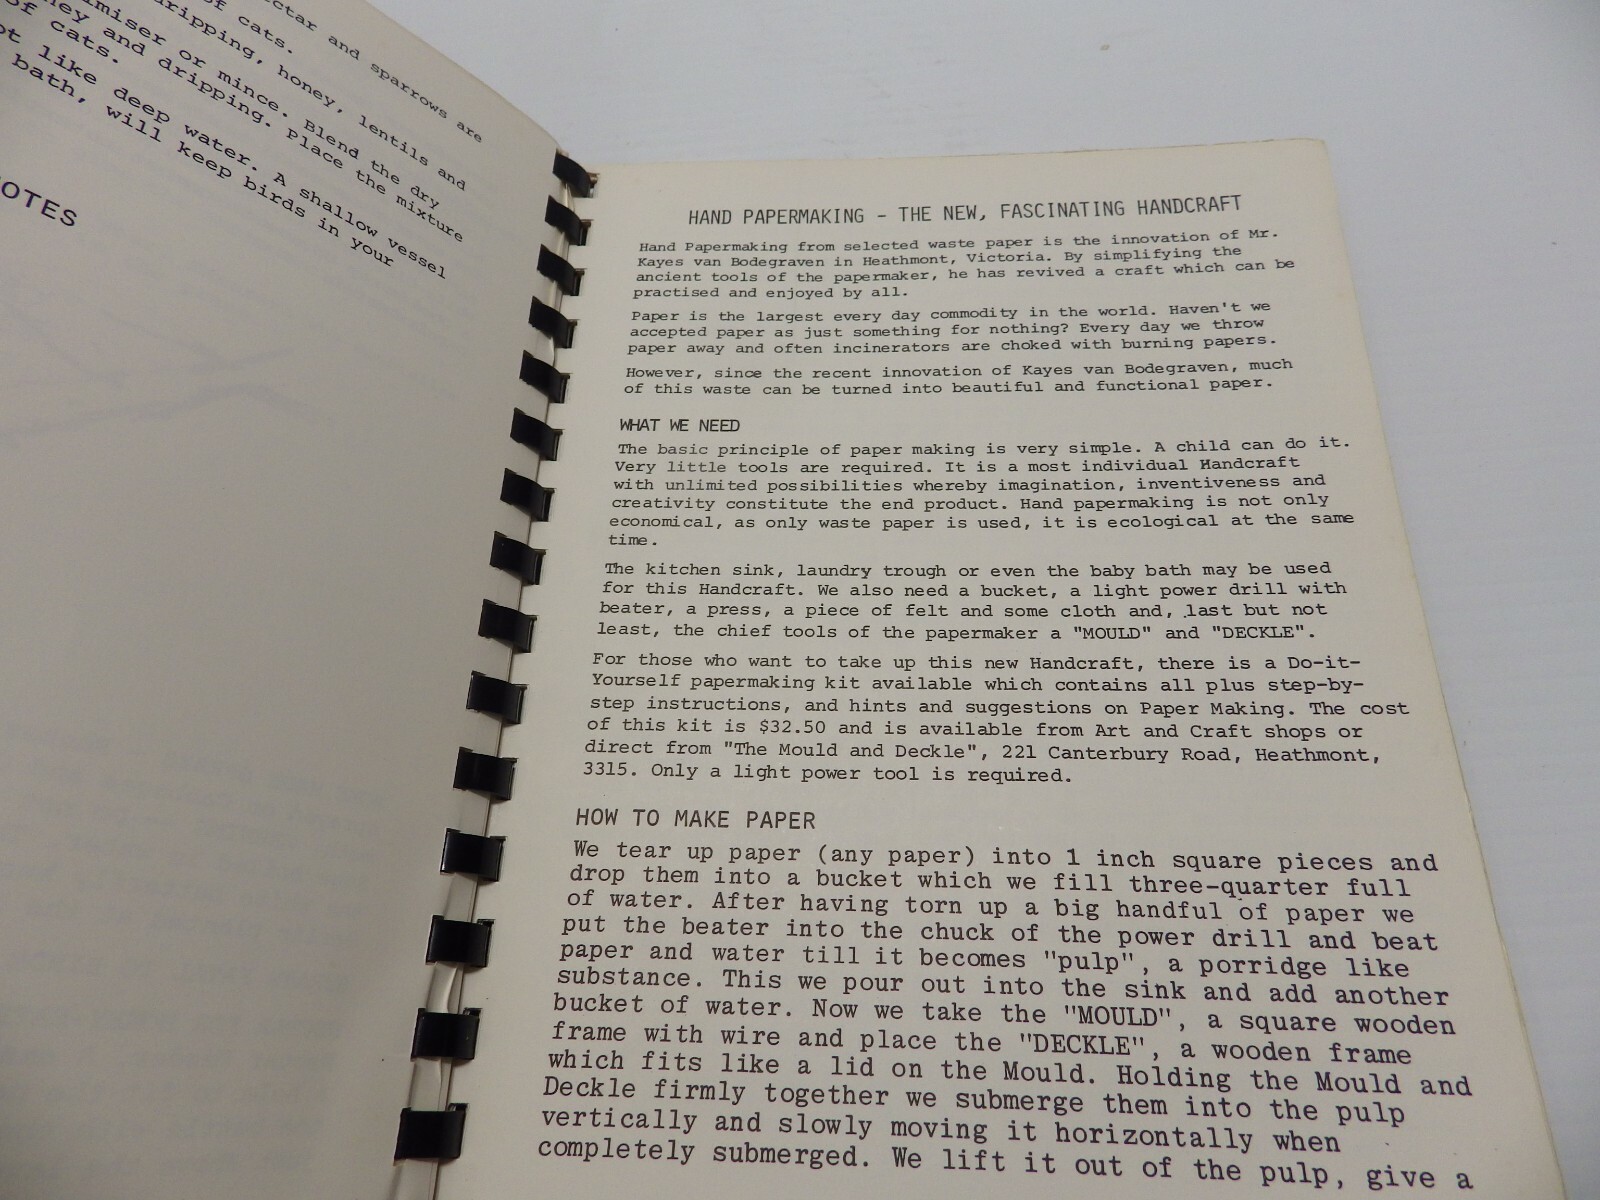 ctar and sparrows are
of cats.
dripping, honey, lentils and
imiser or mince. Blend the dry
ney and dripping. Place the mixture
of cats.
ot like deep water. A shallow vessel
bath, will keep birds in your
OTES
HAND PAPERMAKING - THE NEW, FASCINATING HANDCRAFT
Hand Papermaking from selected waste paper is the innovation of Mr.
Kayes van Bodegraven in Heathmont, Victoria. By simplifying the
ancient tools of the papermaker, he has revived a craft which can be
practised and enjoyed by all.
Paper is the largest every day commodity in the world. Haven't we
accepted paper as just something for nothing? Every day we throw
paper away and often incinerators are choked with burning papers.
However, since the recent innovation of Kayes van Bodegraven, much
of this waste can be turned into beautiful and functional paper.
WHAT WE NEED
The basic principle of paper making is very simple. A child can do it.
Very little tools are required. It is a most individual Handcraft
with unlimited possibilities whereby imagination, inventiveness and
creativity constitute the end product. Hand papermaking is not only
economical, as only waste paper is used, it is ecological at the same
time.
The kitchen sink, laundry trough or even the baby bath may be used
for this Handcraft. We also need a bucket, a light power drill with
beater, a press, a piece of felt and some cloth and, last but not
least, the chief tools of the papermaker a "MOULD" and "DECKLE".
For those who want to take up this new Handcraft, there is a Do-it-
Yourself papermaking kit available which contains all plus step-by-
step instructions, and hints and suggestions on Paper Making. The cost
of this kit is $32.50 and is available from Art and Craft shops or
direct from "The Mould and Deckle", 221 Canterbury Road, Heathmont,
3315. Only a light power tool is required.
HOW TO MAKE PAPER
We tear up paper (any paper) into 1 inch square pieces and
drop them into a bucket which we fill three-quarter full
of water. After having torn up a big handful of paper we
put the beater into the chuck of the power drill and beat
paper and water till it becomes "pulp", a porridge like
substance. This we pour out into the sink and add another
bucket of water. Now we take the "MOULD", a square wooden
frame with wire and place the "DECKLE", a wooden frame
which fits like a lid on the Mould. Holding the Mould and
Deckle firmly together we submerge them into the pulp
vertically and slowly moving it horizontally when
completely submerged. We lift it out of the pulp, give a